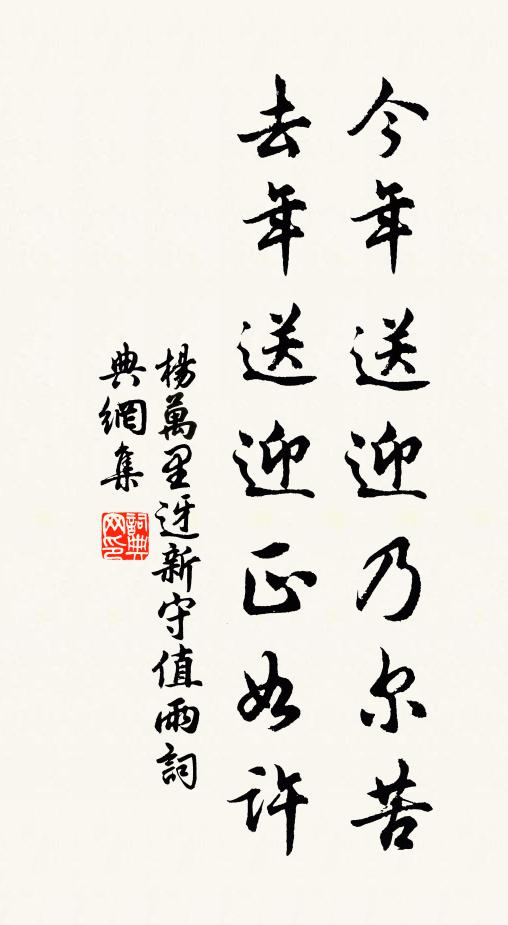 今年送迎乃尔苦
去年送迎正如许
楊萬里迓新守值雨詞
典網集
詞典
网印